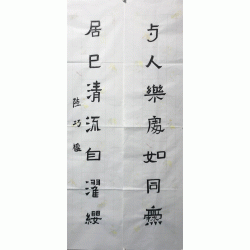 与人樂處如同無
居巳清流自濯纓
陸巧